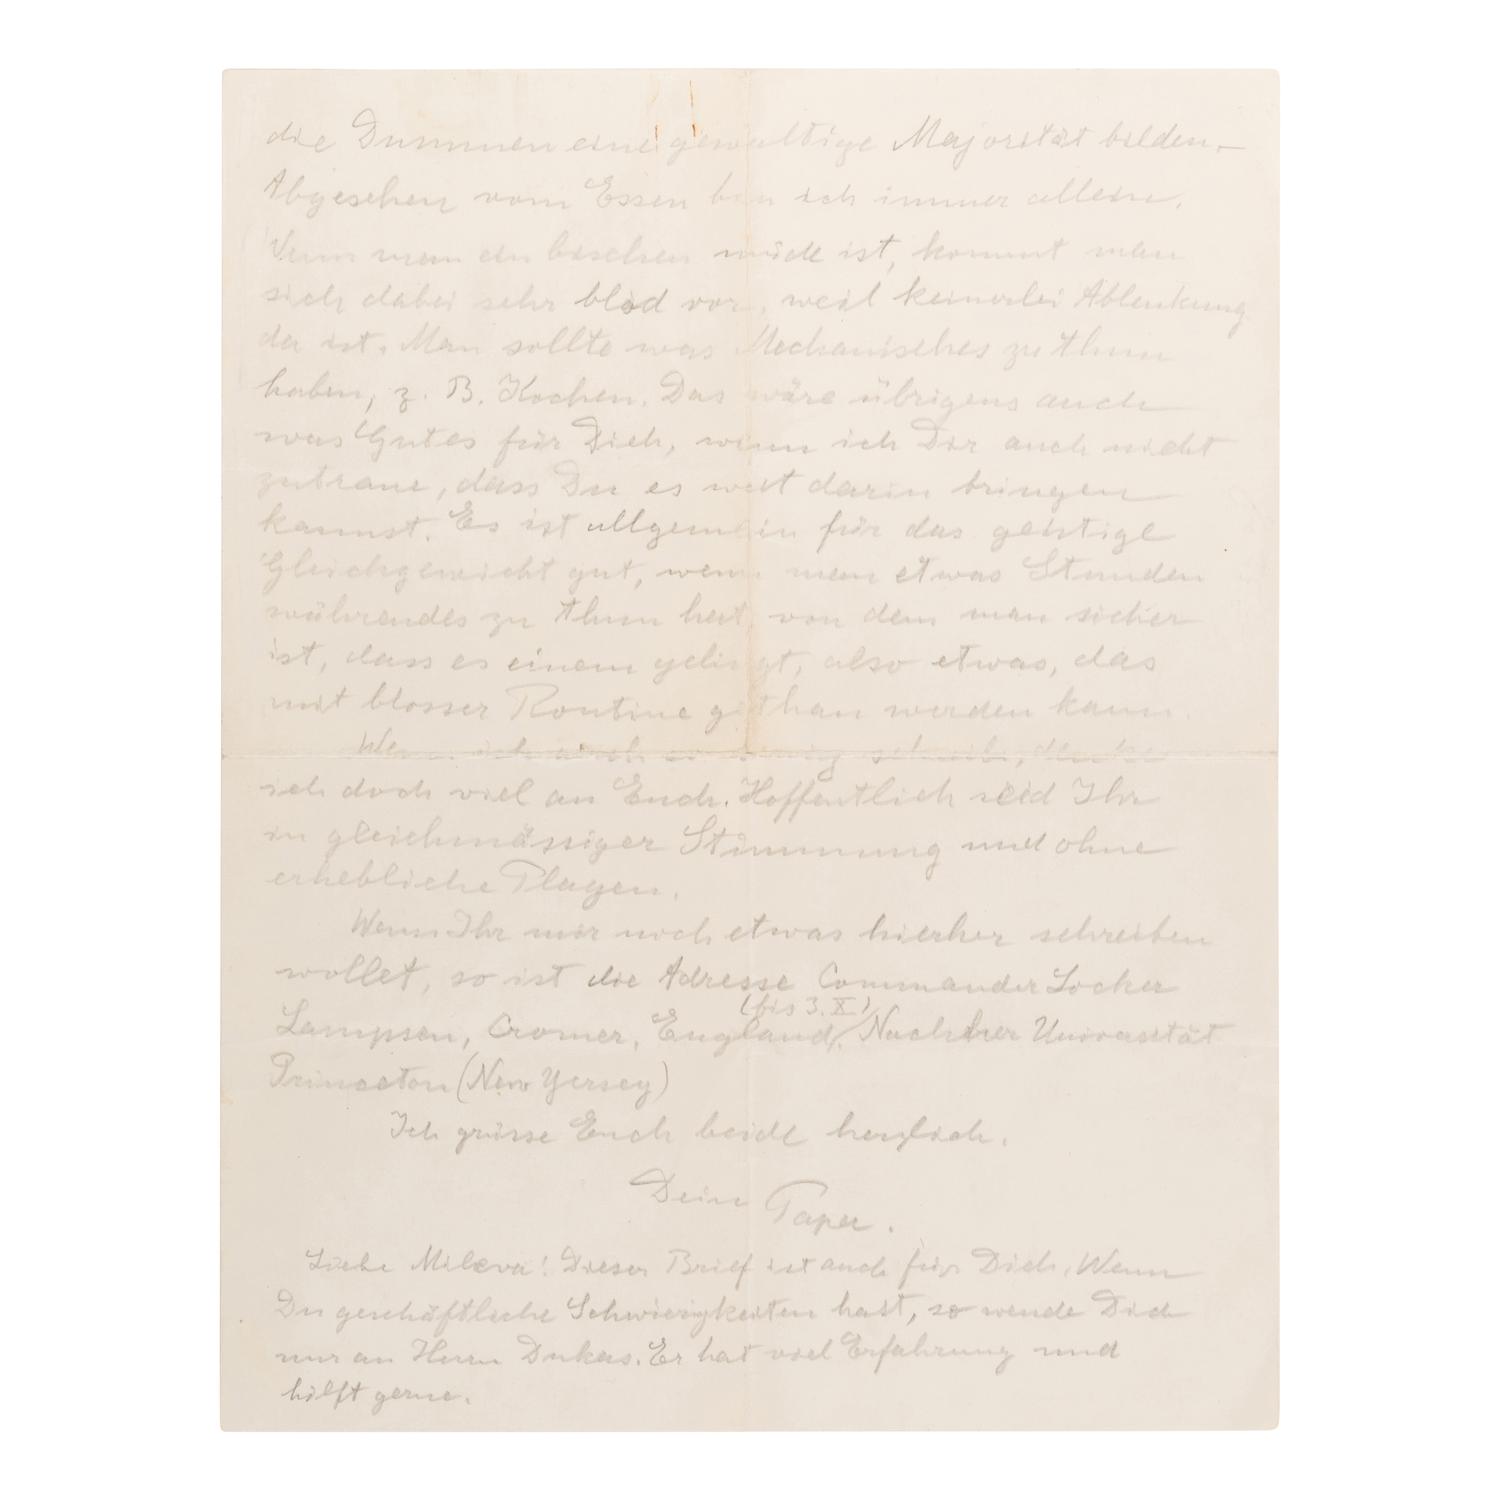 die Dummen eine gewaltige Majorität bilden.
Abgesehen vom Essen bin ich immer allein.
Wenn man ein bischen müde ist, kommt man
sich dabei sehr blöd vor, weil keinerlei Ablenkung
da ist. Man sollte was Mechanisches zu thun
haben, z. B. Kochen. Das wäre übrigens auch
was Gutes für Dich, wenn ich Dir auch nicht
zutraue, dass Du es weit darin bringen
kannst. Es ist allgemein für das geistige
Gleichgewicht gut, wenn man etwas Stunden
währendes zu thun hat, von dem man sicher
ist, dass es einem gelingt, also etwas, das
mit blosser Routine gethan werden kann.
Wenn ich auch so wenig schreibe, denke
ich doch viel an Euch. Hoffentlich seid Ihr
in gleichmässiger Stimmung und ohne
erhebliche Plagen.
Wenn Ihr mir noch etwas hierher schreiben
wollet, so ist die Adresse Commander Locker
(bis 3. X)
Lampsen, Cromer, England. Nachher Universität
Princeton (New Yersey)
Ich grüsse Euch beide herzlich.
Dein Papa.
Liebe Mileva! Dieser Brief ist auch für Dich. Wenn
Du geschäftliche Schwierigkeiten hast, so wende Dich
nur an Herrn Dukas. Er hat viel Erfahrung und
hilft gerne.